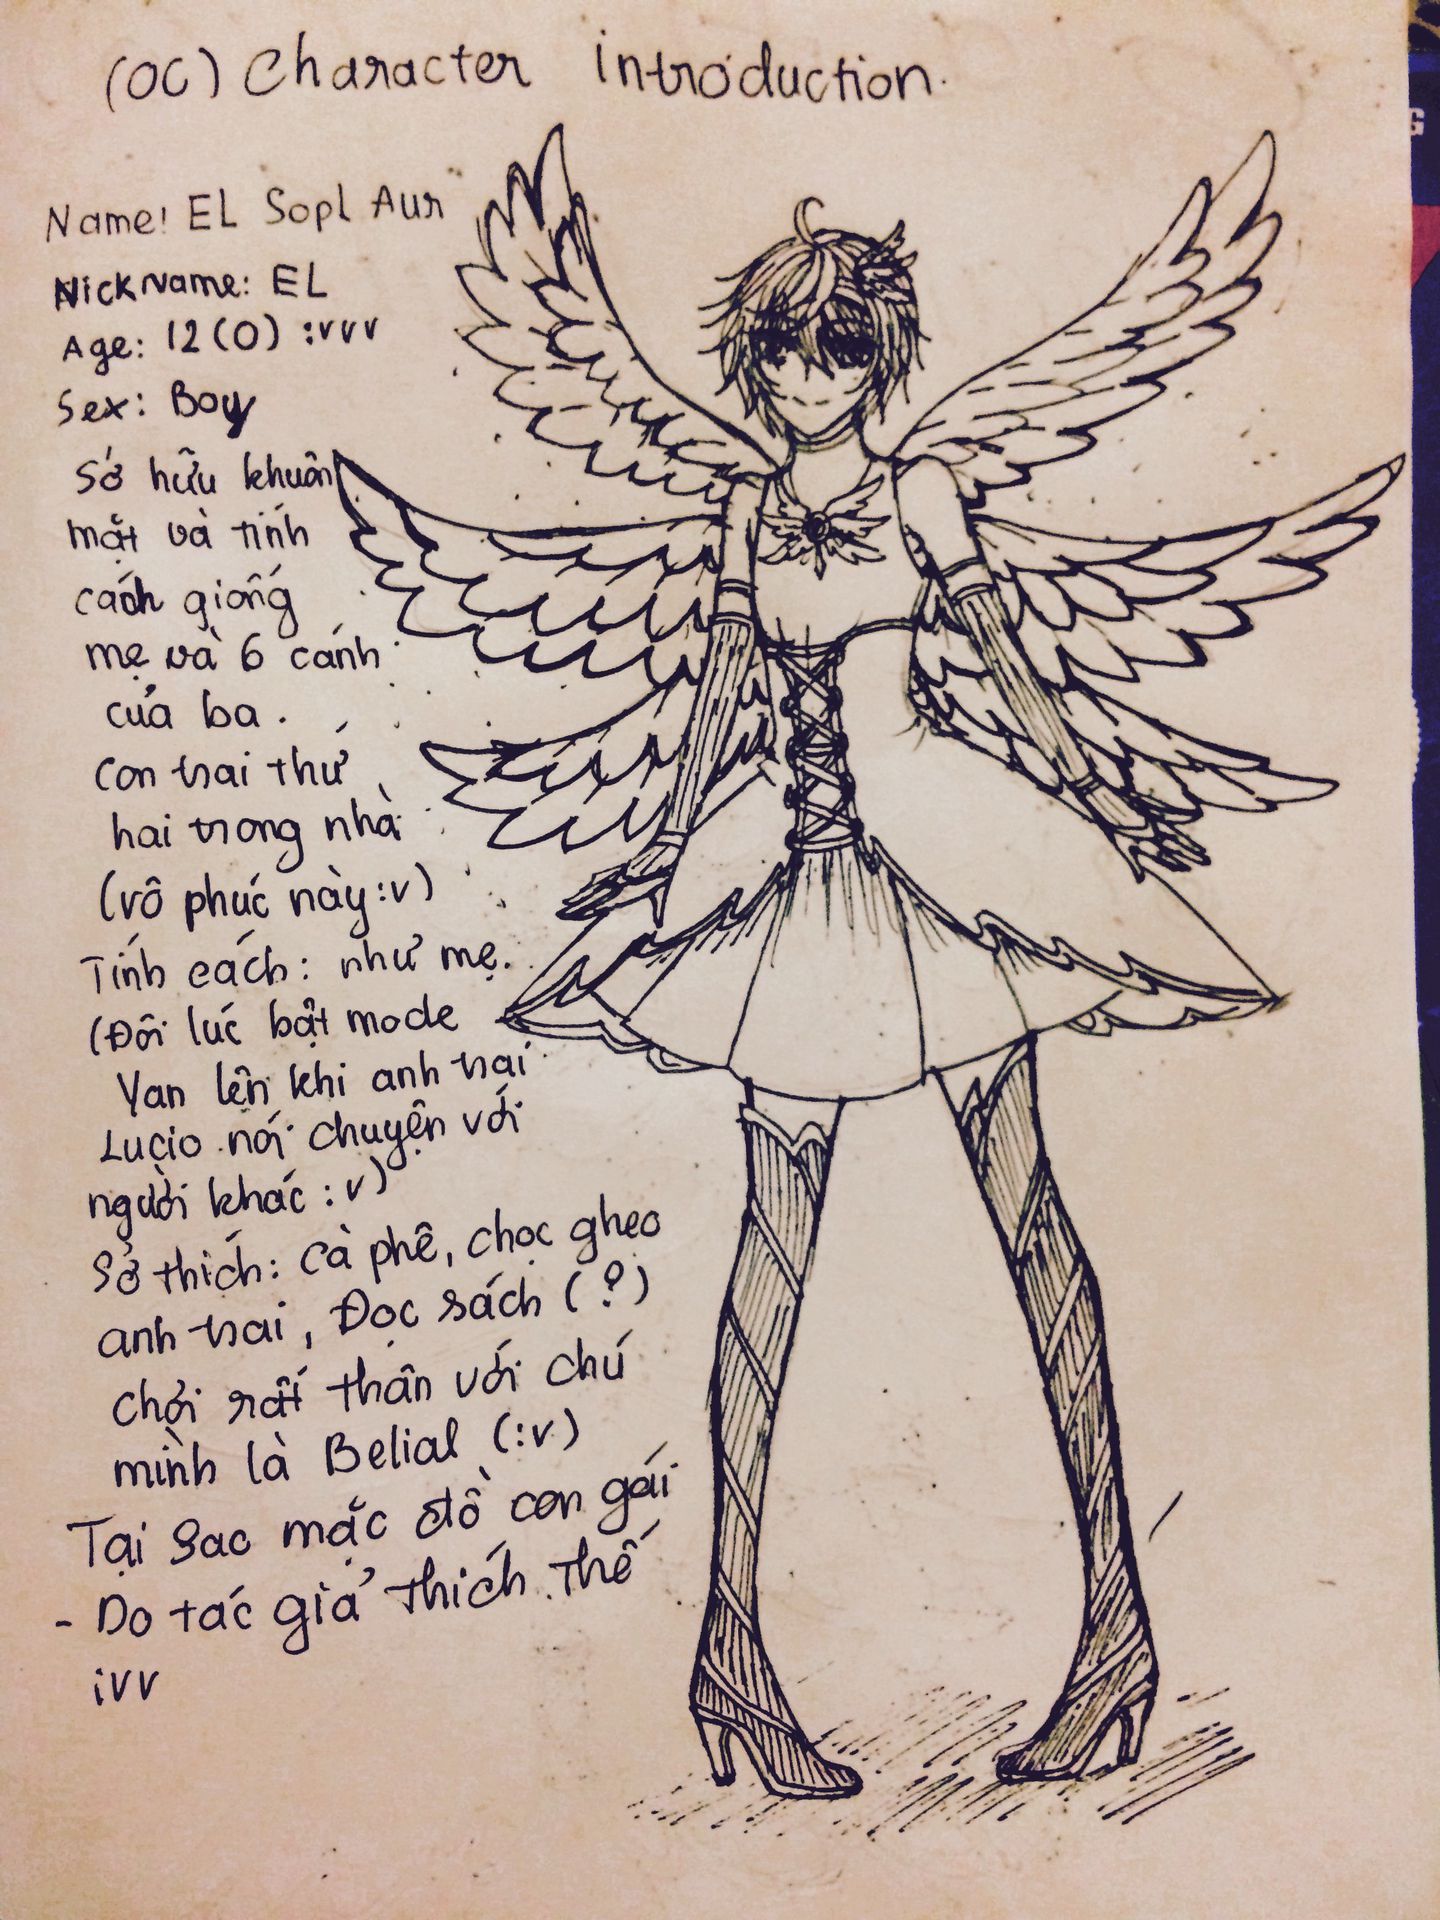 (OC) Character introduction.
Name: EL Sopl Aur
Nickname: EL
Age: 12(0) :vvv
Sex: Boy
Sở hữu khuôn
mặt và tính
cách giống
mẹ và 6 cánh
của ba.
Con trai thứ
hai trong nhà
(vô phúc này :v)
Tính cách: như mẹ.
(Đôi lúc bật mode
Yan lên khi anh trai
Lucio nói chuyện với
người khác :v)
Sở thích: cà phê, chọc ghẹo
anh trai, Đọc sách (?)
chơi rất thân với chú
mình là Belial (:v)
Tại sao mặc đồ con gái
- Do tác giả thích thế
:vv
G